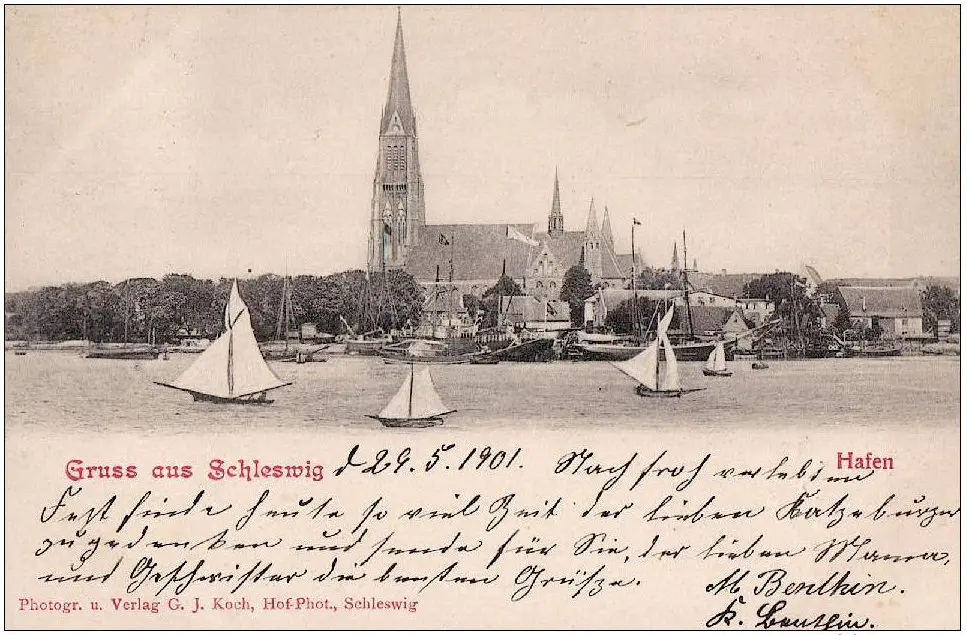 Gruss aus Schleswig d 29. 5. 1901. Nach froh verlebten Hafen
Fest finde heute so viel Zeit der lieben Ratzeburger
zu gedenken und sende für Sie, der lieben Mama,
und Geschwister die besten Grüße. M. Benthin.
Photogr. u. Verlag G. J. Koch, Hof-Phot., Schleswig K. Benthin.